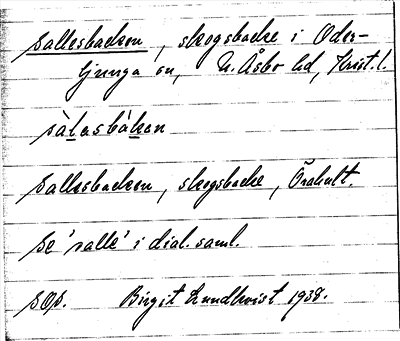 sallesbacken, skogsbacke i Oder-
ljunga sn, N. Åsbo hd, Krist. l.
sàlasbàkan
sallesbacken, skogsbacke, Örahult.
se 'salle' i dial. saml.
SOp. Birgit Lundkvist 1938.